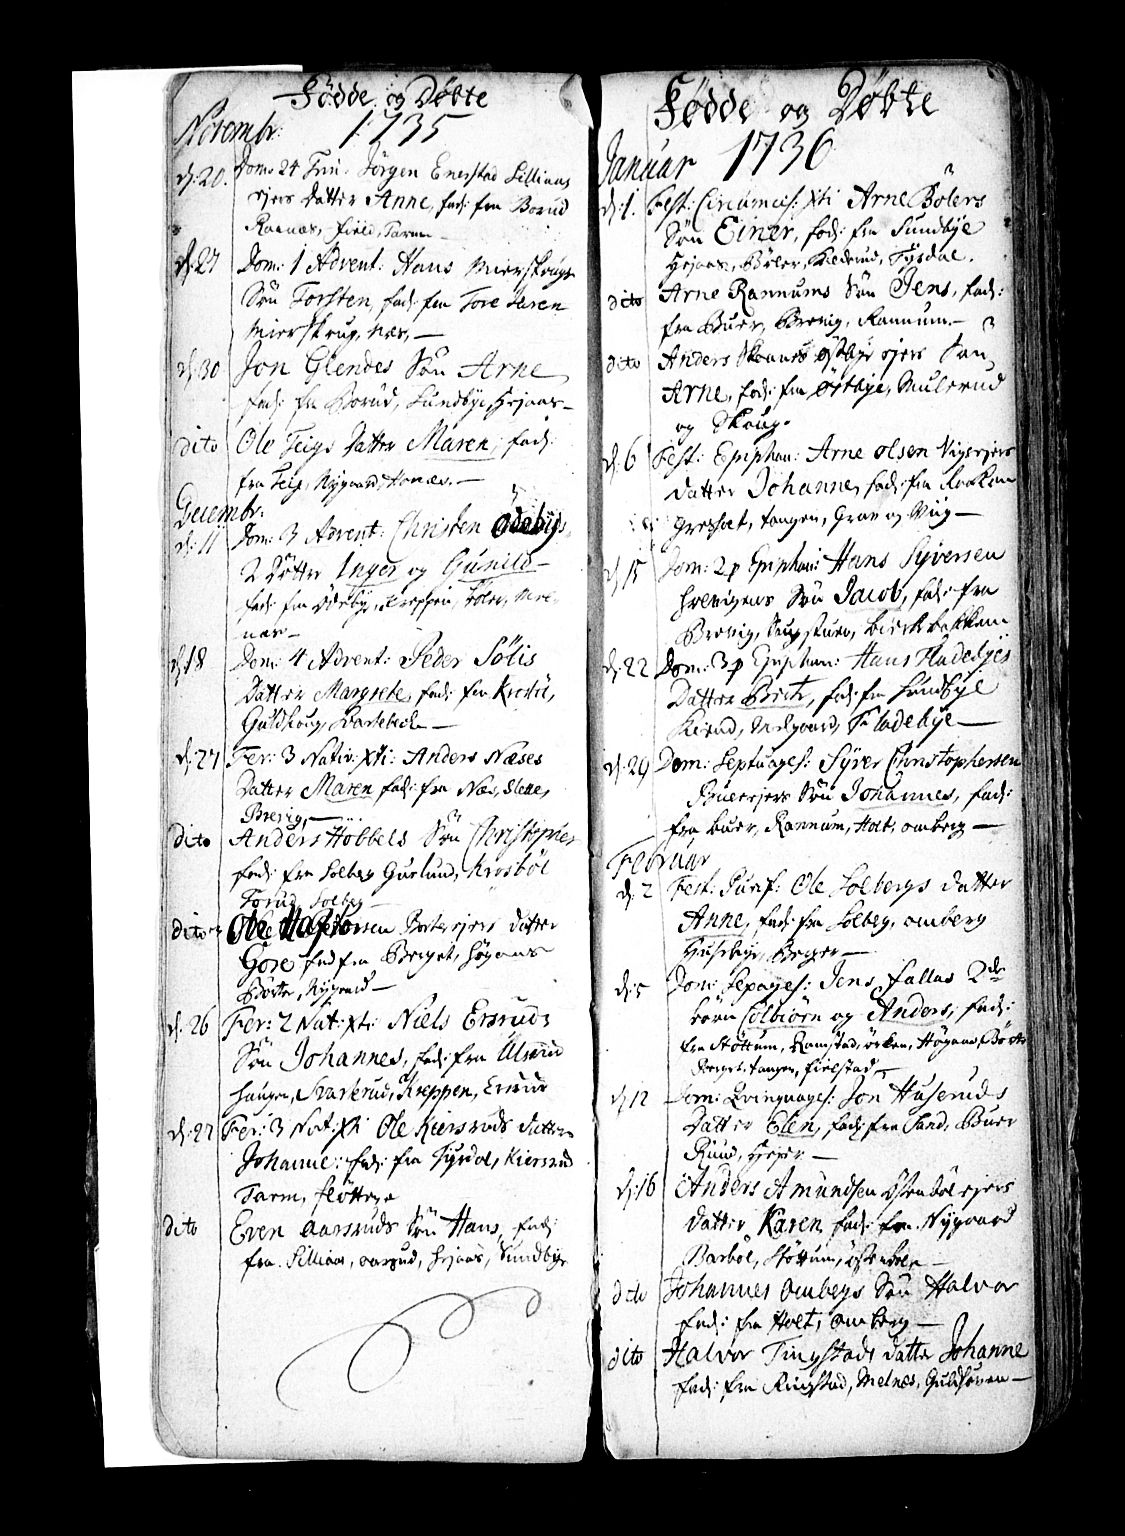 Fødde og Døbte
Novembr: 1735
d: 20. Dom: 24 Trin: Jørgen Enerstad Lilliaas
ejers datter Anne, fad: fra Borud
Raanaas, field, Tarm
d: 27 Dom: 1 Advent: Hans Mierskougs
Søn Torsten, fad: fra Tore
Mierskoug, næs. —
d: 30 Jon Glendes Søn Arne
fad: fra Borud, Sundbye, Hejaas —
dito Ole Teigs datter Maren, fad:
fra Teig, Nygaard, Honæs. —
Decembr:
d: 11 Dom: 3 Advent: Christen Ødebyes
2 døtter Inger og Gunild —
fad: fra Ødebye, Kreppen,
næs —
d: 18 Dom: 4 Advent: Peder Sølis
Datter Margrete, fad: fra
Guldhoug, —
d: 27 Fer: 3 Nativ: xti: Anders Næses
Datter Maren fad: fra Næs, Slette,
Brevig, —
dito Anders Hobbels Søn Christopher
fad: fra Solberg Gurlund, Krosbøl
Torud, Solberg —
dito Ole ejers datter
Gore fad fra Berget, Høgaas
Børte, Nygaard —
d: 26 Fer: 2 Nat: xti: Niels Ersruds
Søn Johannes, fad: fra Ulsrud
haugen, Svarterud, Kreppen, Ersrud
d: 27 Fer: 3 Nat: xti Ole Kiersruds datter
Johanne: fad: fra Tysdal, Kiersrud
Tarm, fløtten
dito Even Aarsruds Søn Hans, fad:
fra Lilliaas, Aarsrud, Hejaas, Sundbye
Fødde og Døbte
Januar 1736
d: 1. Fest: Circumcis: xti Arne Bølers
Søn Einer, fad: fra Sundbye
Hejaas, Bøler, Tysdal.
dito Arne Rannums Søn Jens, fad:
fra Buer, Brevig, Rannum. —
dito Anders Skounes Østbye ejers Søn
Arne, fad: fra Østbye, Mulerud
og Skoug.
d: 6 Fest: Epiphan: Arne Olsen Vigs ejers
datter Johanne, fad: fra
tangen, Grav og Viig —
d: 15 Dom: 2 p Epiphan: Hans Syversen
Søn Jacob, fad: fra
Brevig, birckebakken
d: 22 Dom: 3 p Epiphan: Hans Fladebyes
Datter Berte, fad: fra Sundbye
Midgaard, Fladebye —
d: 29 Dom: Septuages: Syver Christophersen
Buer ejers Søn Johannes, fad:
fra buer, Rannum, Holt, omberg —
Februar
d: 2 Fest: Purif: Ole Solbergs datter
Anne, fad: fra Solberg, omberg
Huseby, Berger —
d: 5 Dom: Sexages: Jens fallas 2de
børn Colbiørn og Anders, fad:
fra Støttum, Ramstad, ørken, Høgaas, Børte
Berget, tangen, fielstad —
d: 12 Dom: Qvinquages: Jon Huseruds
Datter Elen, fad: fra Sand, Buer
Ruud, Hejer. —
d: 16 Anders Amundsen Østenbøl ejers
datter Karen fad: fra Nygaard
Barbøl, Støttum, østenbøl —
dito Johannes ombergs Søn Halvor
fad: fra Holt, omberg —
dito Halvor Tingstads datter Johanne
fad: fra Ringstad, Melnes, Guldhouen —